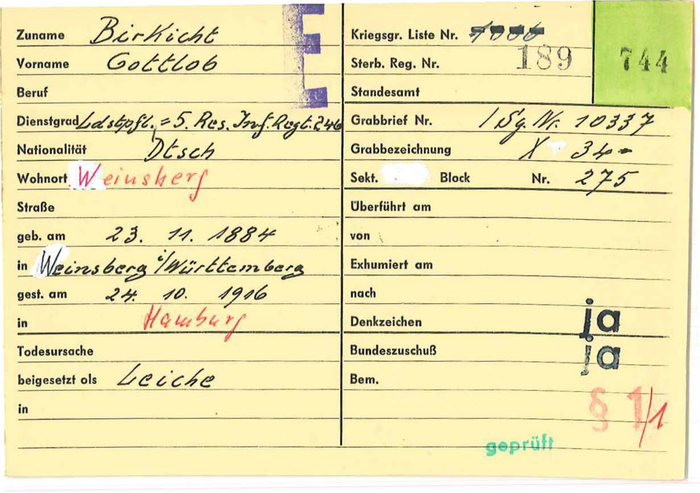 Zuname Birkicht
Vorname Gottlob
Beruf
Dienstgrad Ldstpfl. = 5. Res. Inf. Regt. 246
Nationalität Dtsch
Wohnort Weinsberg
Straße
geb. am 23. 11. 1884
in Weinsberg i/Württemberg
gest. am 24. 10. 1916
in Hamburg
Todesursache
beigesetzt als Leiche
in
E
Kriegsgr. Liste Nr.
Sterb. Reg. Nr. 189
744
Standesamt
Grabbrief Nr. / Sg. Nr. 10337
Grabbezeichnung X 34-
Sekt. Block Nr. 275
Überführt am
von
Exhumiert am
nach
Denkzeichen ja
Bundeszuschuß ja
Bem.
§ 1/1
geprüft